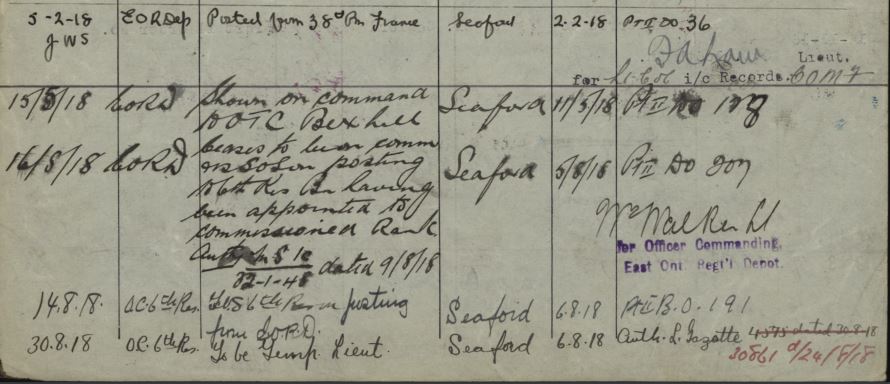 5-2-18 EORDep Posted from 38th Bn France Seaford 2-2-18 Pt II DO. 36
JWS
Lieut.
for Lt-Col i/c Records. COMF
15/5/18 EORD Shown on command Seaford 11/5/18 Pt II DO
to OTC Bexhill
16/8/18 EORD Ceases to be on comm Seaford 5/8/18 Pt II DO 207
is SOS on posting
to 6th Res Bn having
been appointed to
commissioned Rank
Auth dated 9/8/18
32-1-48
Lt
for Officer Commanding,
East Ont. Regt'l Depot.
14.8.18. OC. 6th Res. T.O.S 6th Res on posting Seaford 6.8.18 Pt II B.O. 191
from E.O.R.D.
30.8.18 OC. 6th Res. To be Temp. Lieut. Seaford 6.8.18 Auth. L. Gazette 4575 dated 30-8-18
30861 d/24/8/18